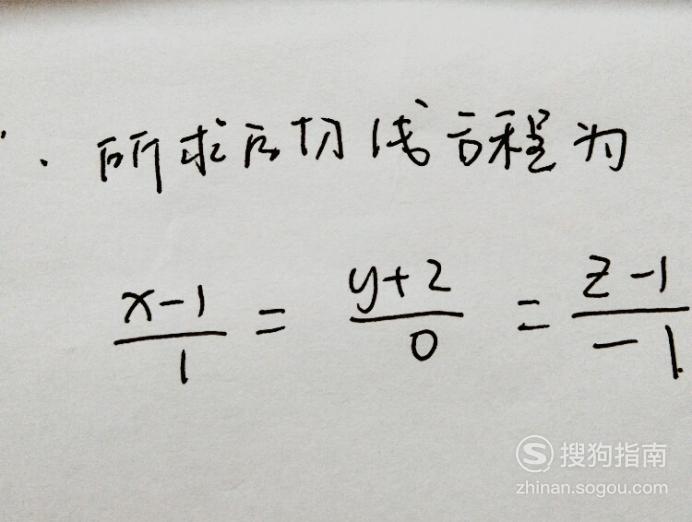 ∴ 所求的切线方程为
x-1/1 = y+2/0 = z-1/-1
搜狗指南
zhinan.sogou.com